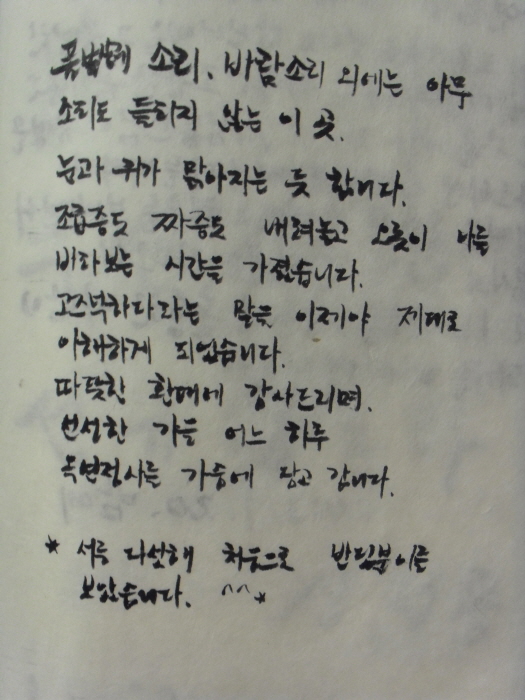 풀벌레 소리, 바람소리 외에는 아무
소리도 들리지 않는 이 곳.
눈과 귀가 맑아지는 듯 합니다.
조급증도 짜증도 내려놓고 오롯이 나를
바라보는 시간을 가졌습니다.
고즈넉하다라는 말을 이제야 제대로
이해하게 되었습니다.
따뜻한 환대에 감사드리며,
선선한 가을 어느 하루
옥연정사를 가슴에 담고 갑니다.
* 서른 다섯해 처음으로 반딧불이를
보았습니다. ^^*